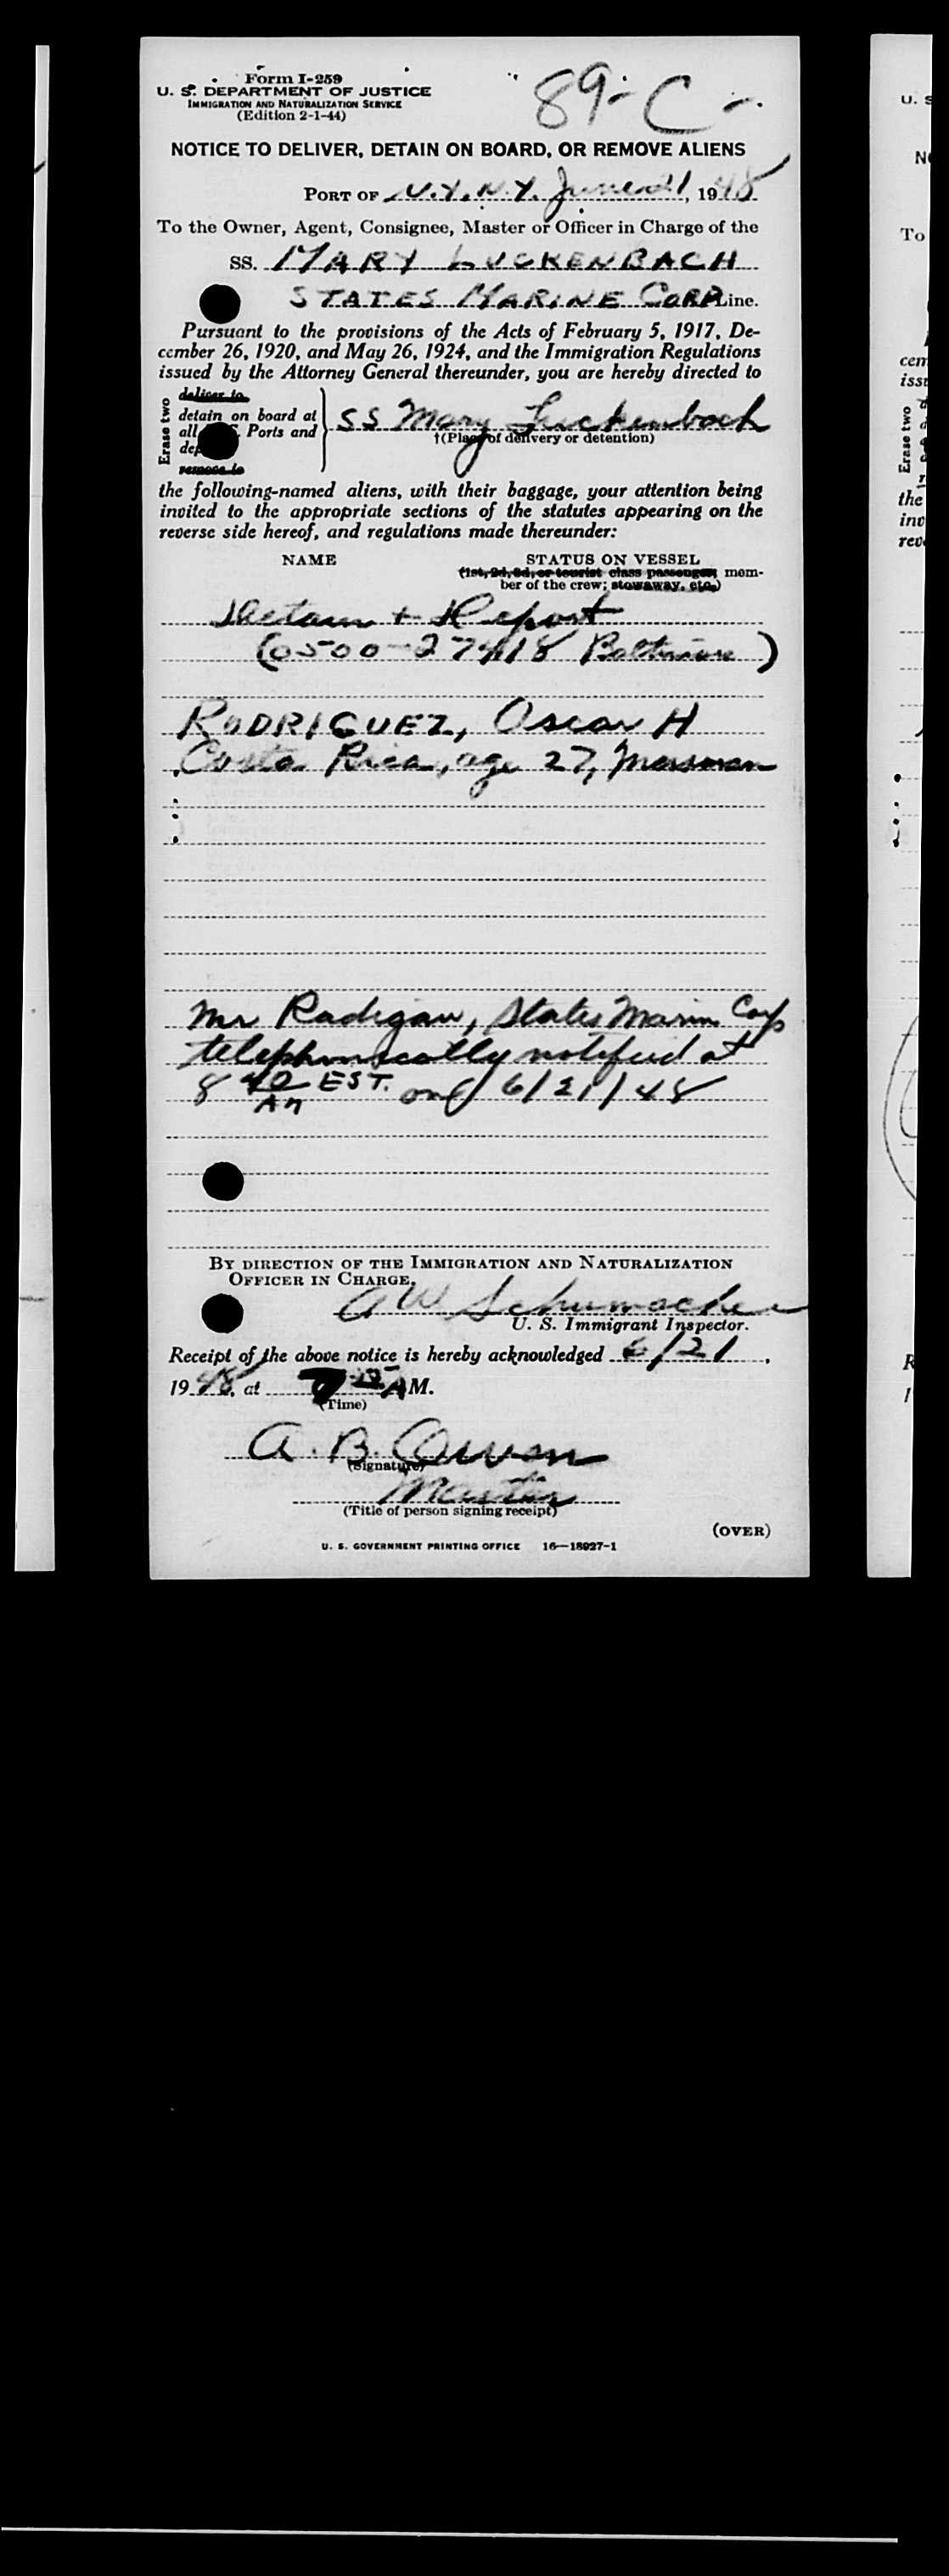 Form I-259
U. S. DEPARTMENT OF JUSTICE
IMMIGRATION AND NATURALIZATION SERVICE
(Edition 2-1-44)
89-C-
NOTICE TO DELIVER, DETAIN ON BOARD, OR REMOVE ALIENS
PORT OF N.Y. N.Y. June 21, 1948
To the Owner, Agent, Consignee, Master or Officer in Charge of the
SS. MARY LUCKENBACH
STATES MARINE CORP Line.
Pursuant to the provisions of the Acts of February 5, 1917, De-
cember 26, 1920, and May 26, 1924, and the Immigration Regulations
issued by the Attorney General thereunder, you are hereby directed to
Erase two
deliver to
detain on board at
all Ports and
remove to
SS Mary Luckenbach
†(Place of delivery or detention)
the following-named aliens, with their baggage, your attention being
invited to the appropriate sections of the statutes appearing on the
reverse side hereof, and regulations made thereunder:
NAME STATUS ON VESSEL
(1st, 2d, 3d, or tourist class passenger; mem-
ber of the crew; stowaway, etc.)
Detain + Report
(0500-27418 Baltimore)
RODRIGUEZ, Oscar H
Costa Rica, age 27, Messman
Mr Radigan, States Marine Corp
telephonically notified at
8 40 AM EST. on 6/21/48
BY DIRECTION OF THE IMMIGRATION AND NATURALIZATION
OFFICER IN CHARGE.
A W Schumacher
U. S. Immigrant Inspector.
Receipt of the above notice is hereby acknowledged 6/21,
1948, at AM.
(Time)
A. B. Owen
(Signature)
Master
(Title of person signing receipt)
(OVER)
U. S. GOVERNMENT PRINTING OFFICE 16—18927-1